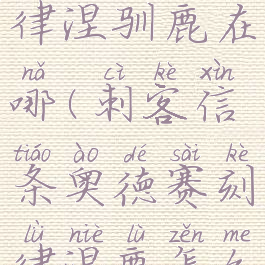 律涅驯鹿在
nǎ cì kè xìn
哪(刺客信
tiáo ào dé sài kè
条奥德赛刻
lǜ niè lù zěn me
律涅鹿怎么